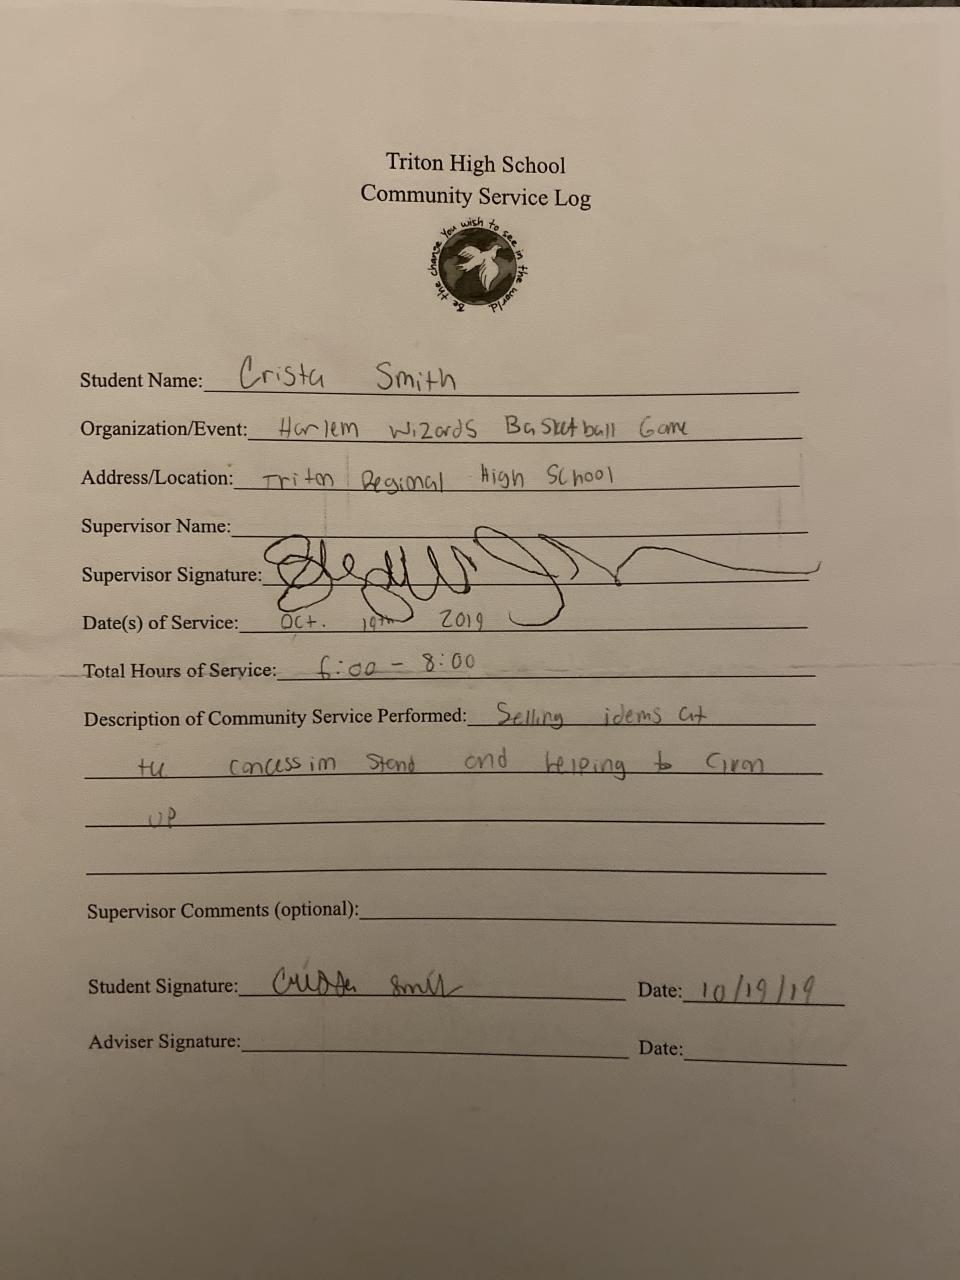 Triton High School
Community Service Log
Be the change You wish to see in the world.
Student Name: Crista Smith
Organization/Event: Harlem Wizards Basketball Game
Address/Location: Triton Regional High School
Supervisor Name:
Supervisor Signature:
Date(s) of Service: Oct. 19th 2019
Total Hours of Service: 6:00 - 8:00
Description of Community Service Performed: Selling idems at
the concession stand and helping to clean
up
Supervisor Comments (optional):
Student Signature: Crista Smith Date: 10/19/19
Adviser Signature: Date: